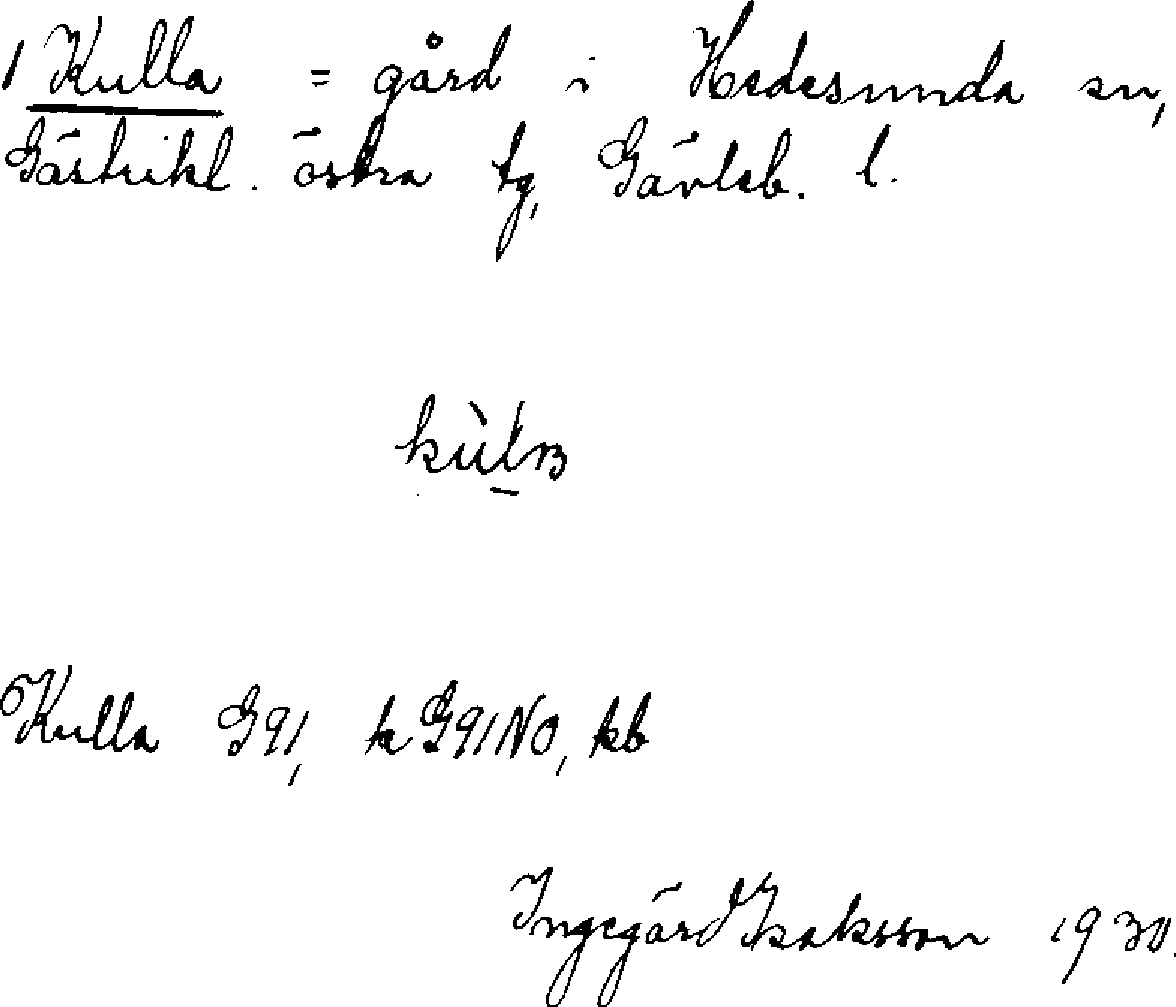 1 Kulla = gård i Hedesunda sn,
Gästrikl. östra tg, Gävleb. l.
Kulla G91, k G91NO, kb
Ingegärd Isaksson 1930.